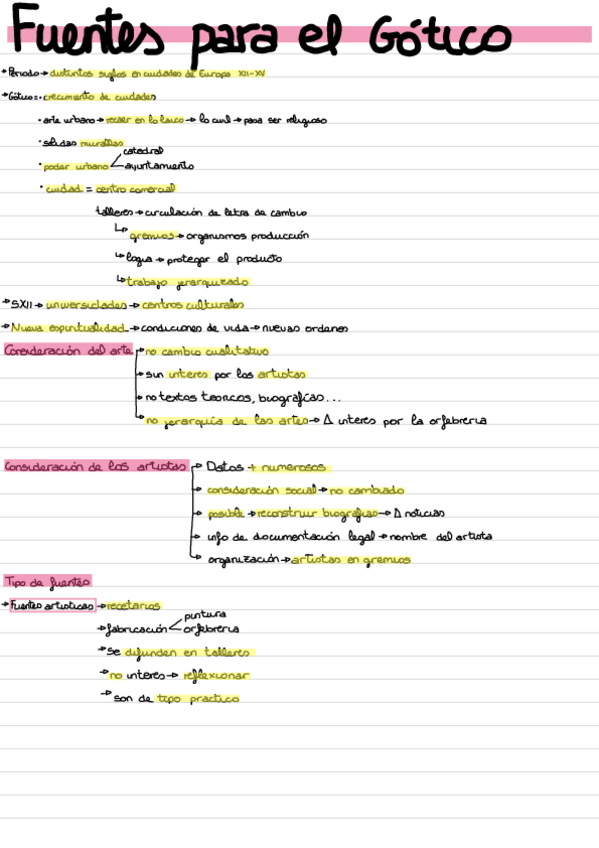 Fuentes para el Gótico
→ Periodo → distintos siglos en ciudades de Europa XII-XV
→ Gótico = · crecimiento de ciudades
· arte urbano → recaer en lo laico → lo civil → pasa ser religioso
· sólidas murallas
· poder urbano < catedral
ayuntamiento
· ciudad = centro comercial
talleres → circulación de letra de cambio
↳ gremios → organismos producción
↳ logia → proteger el producto
↳ trabajo jerarquizado
→ SXII → universidades → centros culturales
→ Nueva espiritualidad → condiciones de vida → nuevas ordenes
Consideración del arte → no cambio cualitativo
→ sin interes por los artistas
→ no textos teoricos, biografías...
→ no jerarquía de las artes → Δ interes por la orfebreria
Consideración de los artistas → Datos + numerosos
→ consideración social → no cambiado
→ posible → reconstruir biografias → Δ noticias
→ info de documentación legal → nombre del artista
→ organización → artistas en gremios
Tipo de fuentes
→ Fuentes artisticas → recetarios
→ fabricación < pintura
orfebreria
→ se difunden en talleres
→ no interes → reflexionar
→ son de tipo practico